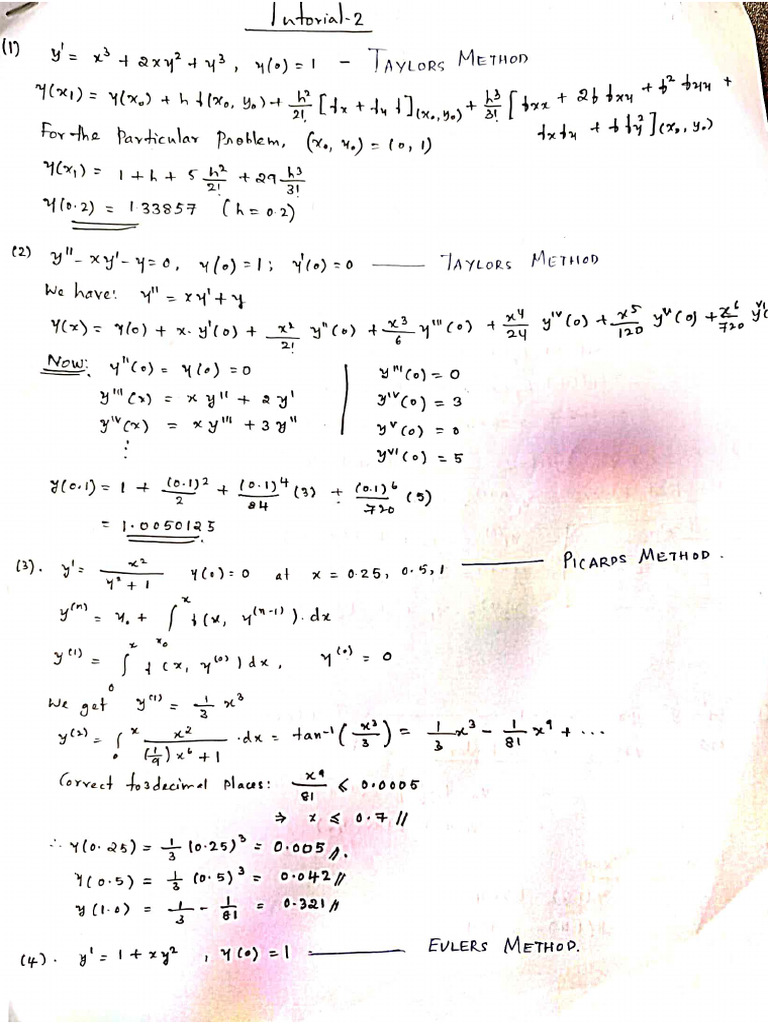 Tutorial-2
(1) y' = x³ + 2xy² + y³, y(0) = 1 - TAYLORS METHOD
y(x₁) = y(x₀) + h f(x₀, y₀) + h²/2! [fx + fy f](x₀, y₀) + h³/3! [fxx + 2f fxy + f² fyy +
fx fy + f fy²](x₀, y₀)
For the Particular Problem, (x₀, y₀) = (0, 1)
y(x₁) = 1 + h + 5 h²/2! + 29 h³/3!
y(0.2) = 1.33857 (h = 0.2)
(2) y'' - xy' - y = 0, y(0) = 1; y'(0) = 0 —— TAYLORS METHOD
We have: y'' = xy' + y
y(x) = y(0) + x. y'(0) + x²/2! y''(0) + x³/6 y'''(0) + x⁴/24 y^iv(0) + x⁵/120 y^v(0) + x⁶/720 y^vi
Now: y''(0) = y(0) = 0 | y'''(0) = 0
y'''(x) = x y'' + 2y' | y^iv(0) = 3
y^iv(x) = xy''' + 3y'' | y^v(0) = 0
⋮ y^vi(0) = 5
y(0.1) = 1 + (0.1)²/2 + (0.1)⁴/24 (3) + (0.1)⁶/720 (5)
= 1.0050125.
(3). y' = x²/(y² + 1) y(0) = 0 at x = 0.25, 0.5, 1 —— PICARDS METHOD.
y^(n) = y₀ + ∫_x₀^x f(x, y^(n-1)). dx
y^(1) = ∫_0^x f(x, y^(0)) dx, y^(0) = 0
We get y^(1) = 1/3 x³
y^(2) = ∫_0^x x²/((1/9) x⁶ + 1) . dx = tan⁻¹(x³/3) = 1/3 x³ - 1/81 x⁹ + ...
Correct to 3 decimal places: x⁹/81 ⩽ 0.0005
⇒ x ⩽ 0.7 //
∴ y(0.25) = 1/3 (0.25)³ = 0.005 //.
y(0.5) = 1/3 (0.5)³ = 0.042 //
y(1.0) = 1/3 - 1/81 = 0.321 //
(4). y' = 1 + xy², y(0) = 1 —— EULERS METHOD.